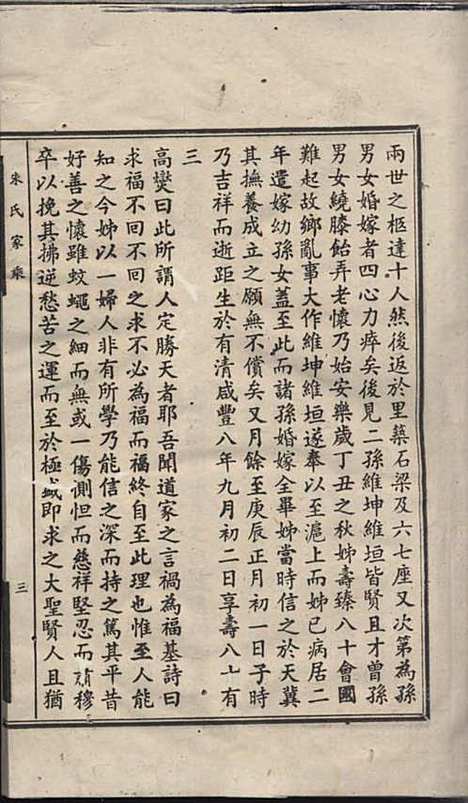 兩世之柩達十人然後返於里築石梁及六七座又次第為孫
男女婚嫁者四心力瘁矣後見二孫維坤維垣皆賢且才曾孫
男女繞膝飴弄老懷乃始安樂歲丁丑之秋姊壽臻八十會國
難起故鄉亂事大作維坤維垣遂奉以至滬上而姊已病居二
年還嫁幼孫女蓋至此而諸孫婚嫁全畢姊當時信之於天冀
其撫養成立之願無不償矣又月餘至庚辰正月初一日子時
乃吉祥而逝距生於有清咸豐八年九月初二日享壽八十有
三
高燮曰此所謂人定勝天者耶吾聞道家之言禍為福基詩曰
求福不回不回之求不必為福而福終自至此理也惟至人能
知之今姊以一婦人非有所學乃能信之深而持之篤其平昔
好善之懷雖蚊蠅之細而無或一傷惻怛而慈祥堅忍而靖穆
卒以挽其拂逆愁苦之運而至於極盛即求之大聖賢人且猶
朱氏家乘
三